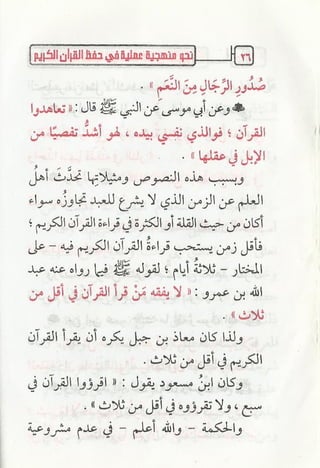 ٢٦
نحو منهجية عملية في حفظ القرآن الكريم
صُدُورِ الرِّجَالِ مِنَ النَّعَمِ » .
وعن أبي موسى عن النبي ﷺ قال : « تعاهدوا
القرآن ؛ فوالذي نفسي بيده ، لهو أشدُّ تفصيًا من
الإبل في عقلها » .
وبسبب هذه النصوص ومثيلاتها تحدَّثَ أهلُ
العلم عن الزمن الذي لا يشرع للعبد تجاوزُه سواء
أكان من حيث القلة أو الكثرة في قراءة القرآن الكريم ؛
فأقل زمن يستحب قراءةُ القرآن الكريم فيه – على
المختار – ثلاثةُ أيام ؛ لقوله ﷺ فيما رواه عنه عبد
الله بن عمرو : « لا يفقه مَنْ قرأ القرآن في أقل من
ثلاث » .
ولذا كان معاذ بن جبل يكره أن يقرأ القرآن
الكريم في أقل من ثلاث .
وكان ابنُ مسعود يقول : « اقرؤوا القرآن في
سبع ، ولا تقرؤوه في أقل من ثلاث » .
والحكمة – والله أعلم – في عدم مشروعية